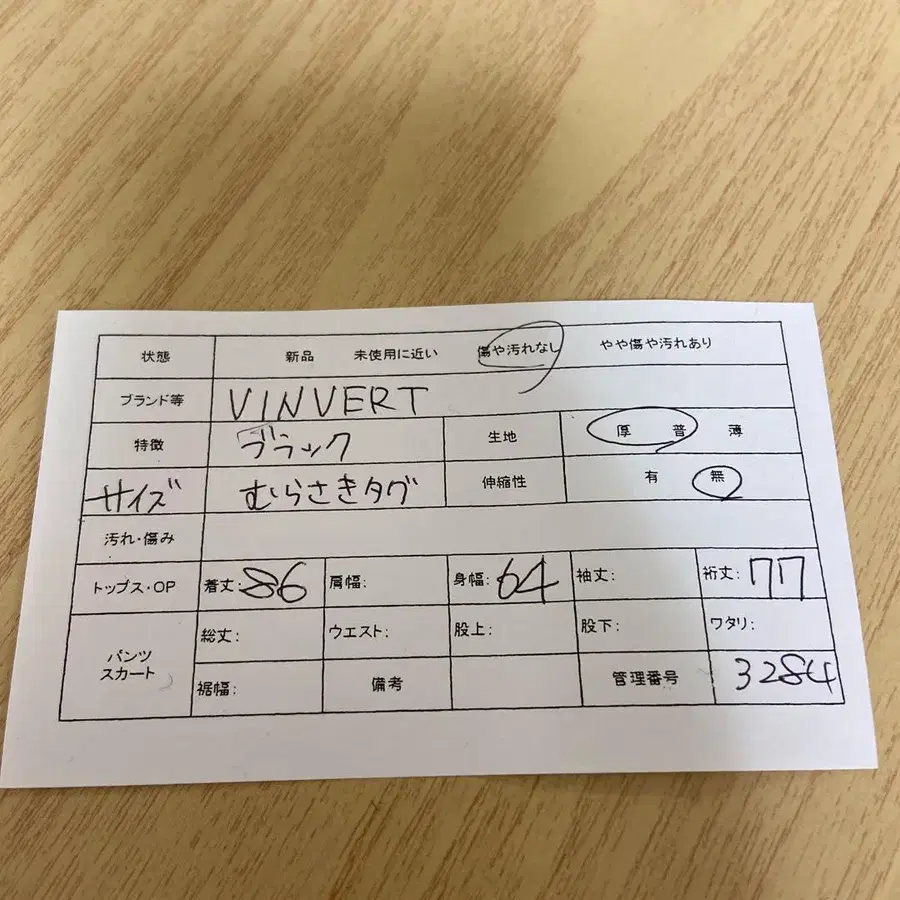 状態 新品 未使用に近い 傷や汚れなし やや傷や汚れあり
ブランド等 VINVERT
特徴 ブラック 生地 厚 普 薄
サイズ むらさきタグ 伸縮性 有 無
汚れ・傷み
トップス・OP 着丈:86 肩幅: 身幅:64 袖丈: 裄丈:77
パンツ
スカート
総丈: ウエスト: 股上: 股下: ワタリ:
裾幅: 備考 管理番号 3284